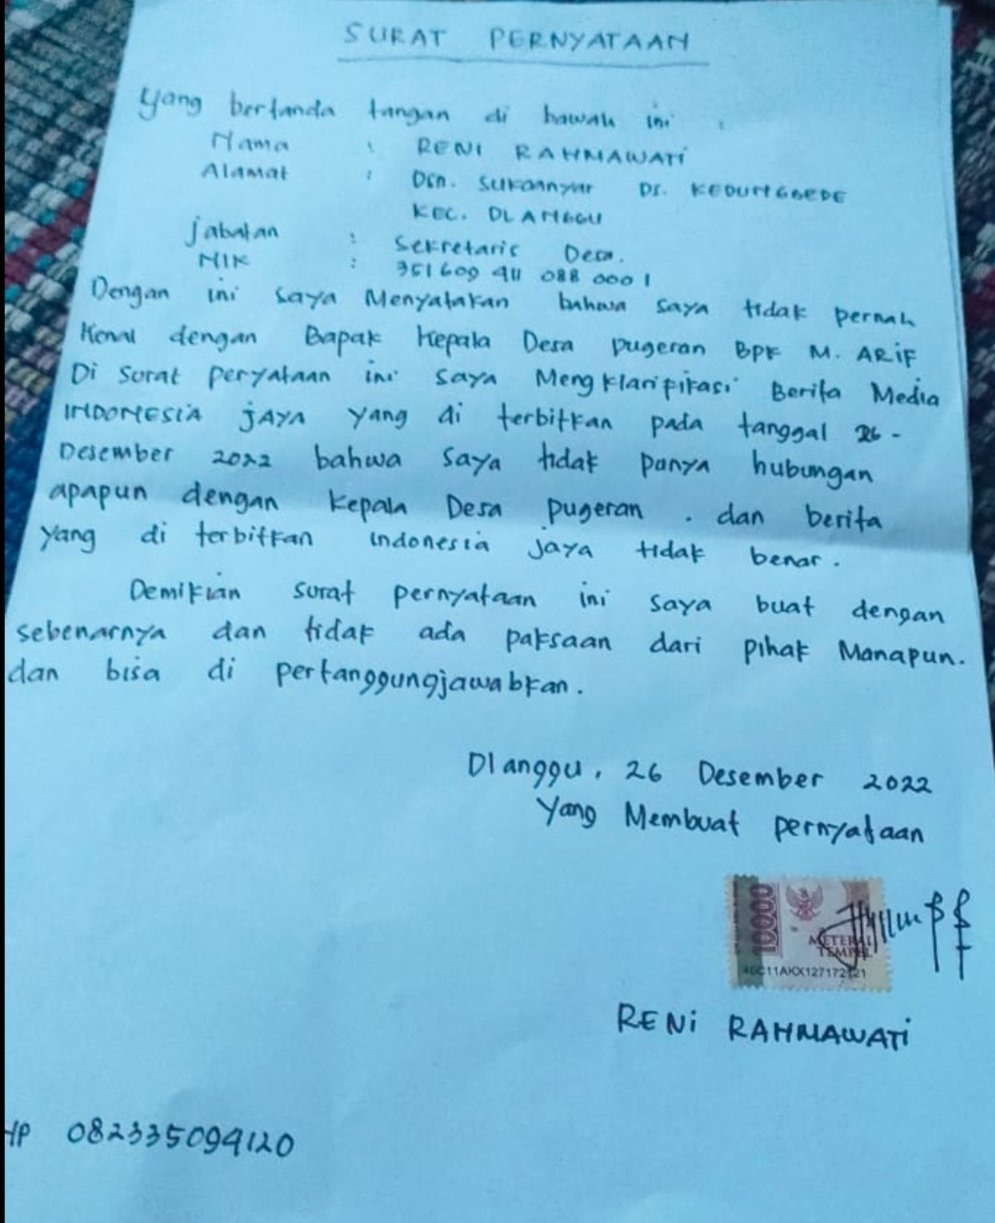 SURAT PERNYATAAN
Yang bertanda tangan di bawah ini :
Nama : RENI RAHMAWATI
Alamat : Dsn. Sukoanyar Ds. KEDUNGGEDE
KEC. DLANGGU
Jabatan : Sekretaris Desa.
NIK : 351609 411 088 0001
Dengan ini saya Menyatakan bahwa saya tidak pernah
Kenal dengan Bapak Kepala Desa Pugeran BPK M. ARIF
Di Surat peryataan ini saya Mengklarifikasi Berita Media
INDONESIA JAYA yang di terbitkan pada tanggal 26 -
Desember 2022 bahwa saya tidak punya hubungan
apapun dengan Kepala Desa Pugeran . dan berita
yang di terbitkan indonesia jaya tidak benar.
Demikian surat pernyataan ini saya buat dengan
sebenarnya dan tidak ada paksaan dari pihak Manapun.
dan bisa di pertanggungjawabkan.
Dlanggu, 26 Desember 2022
Yang Membuat pernyataan
10000
METERAI
TEMPEL
RENI RAHMAWATI
HP 082335094120